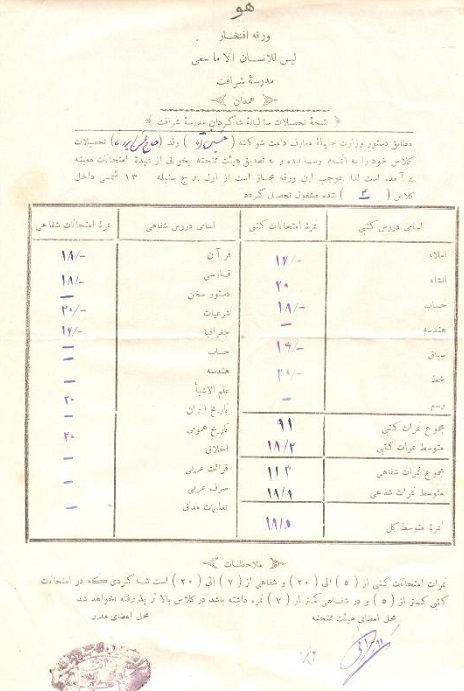 هو
ورقه افتخار
لیس للانسان الا ما سعی
مدرسهٔ شرافت
همدان
نتیجهٔ تحصیلات سالیانهٔ شاگردان مدرسهٔ شرافت
مطابق دستور وزارت جلیلهٔ معارف دامت شوکته ( ) ولد ( ) تحصیلات
کلاس خود را به اتمام رسانیده و به تصدیق هیئت ممتحنه بخوبی از عهدهٔ امتحانات معینه
برآمده است لذا بموجب این ورقه مجاز است از اول برج سنبله ۱۳ شمسی داخل
کلاس ( ۳ ) شده مشغول تحصیل گردد
اسامی دروس کتبی نمرهٔ امتحانات کتبی اسامی دروس شفاهی نمرهٔ امتحانات شفاهی
املاء ۱۷/- قرآن ۱۸/-
انشاء ۲۰ فارسی ۱۸/-
دستور سخن –
حساب ۱۸/- شرعیات ۲۰/-
هندسه – جغرافیا ۱۷/-
سیاق ۱۶/- حساب –
خط ۲۰/- هندسه –
رسم – علم الاشیاء ۲۰
تاریخ ایران –
مجموع نمرات کتبی ۹۱ تاریخ عمومی ۲۰
متوسط نمرات کتبی ۱۸/۲ اخلاق –
مجموع نمرات شفاهی ۱۱۳ قرائت عربی –
متوسط نمرات شفاهی ۱۸/۸ صرف عربی –
تعلیمات مدنی –
نمرهٔ متوسط کل ۱۸/۵
ملاحظات
نمرات امتحانات کتبی از ( ۵ ) الی ( ۲۰ ) و شفاهی از ( ۷ ) الی ( ۲۰ ) است شاگردی که در امتحانات
کتبی کمتر از ( ۵ ) و در شفاهی کمتر از ( ۷ ) نمره داشته باشد در کلاس بالاتر پذیرفته نخواهد شد
محل امضای هیئت ممتحنه محل امضای مدیر